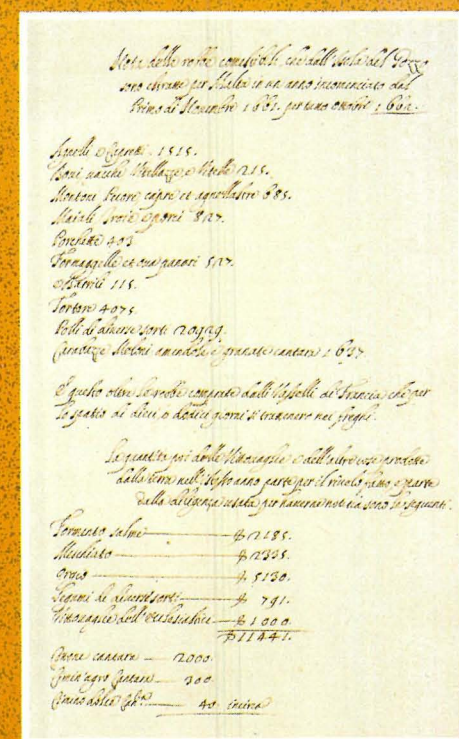 Nota delle robbe comestibili, che dall'Isola del Gozo
sono estratte per Malta in un anno incominciato dal
Primo di Novembre 1661. per tutto Ottobre 1662.
Agnelli e Capretti. 1515.
Bovi vacche Vitellazze e Vitelle 215.
Montoni Pecore capre et agnellastre 685.
Maiali Troie e porci 827.
Porchette 403
Formaggelle et ova 527.
115.
Tortore 4075.
Polli di diverse sorti 20929.
Carabazze Meloni amendole e granate cantara 1637.
E questo oltre la robbe comprate dalli Vasselli di Francia che per
lo spatio di dieci o dodici giorni si trattenero nei freghi.
La quantità poi delle Vittovaglie e dell'altre cose prodotte
dalla terra nell'istesso anno parte per il rivelo fatto e parte
dalla diligenza usata per haverne notitia sono le seguenti.
Formento salme 2185.
Mischiato 2335.
Orgio 5130.
Legumi di diverse sorti 791.
Vittovaglie dell'ecclesiastici 1000
11441.
Cottone cantara 2000.
Cimin'agro Cantara 300
Cimino dolce 40 incirca